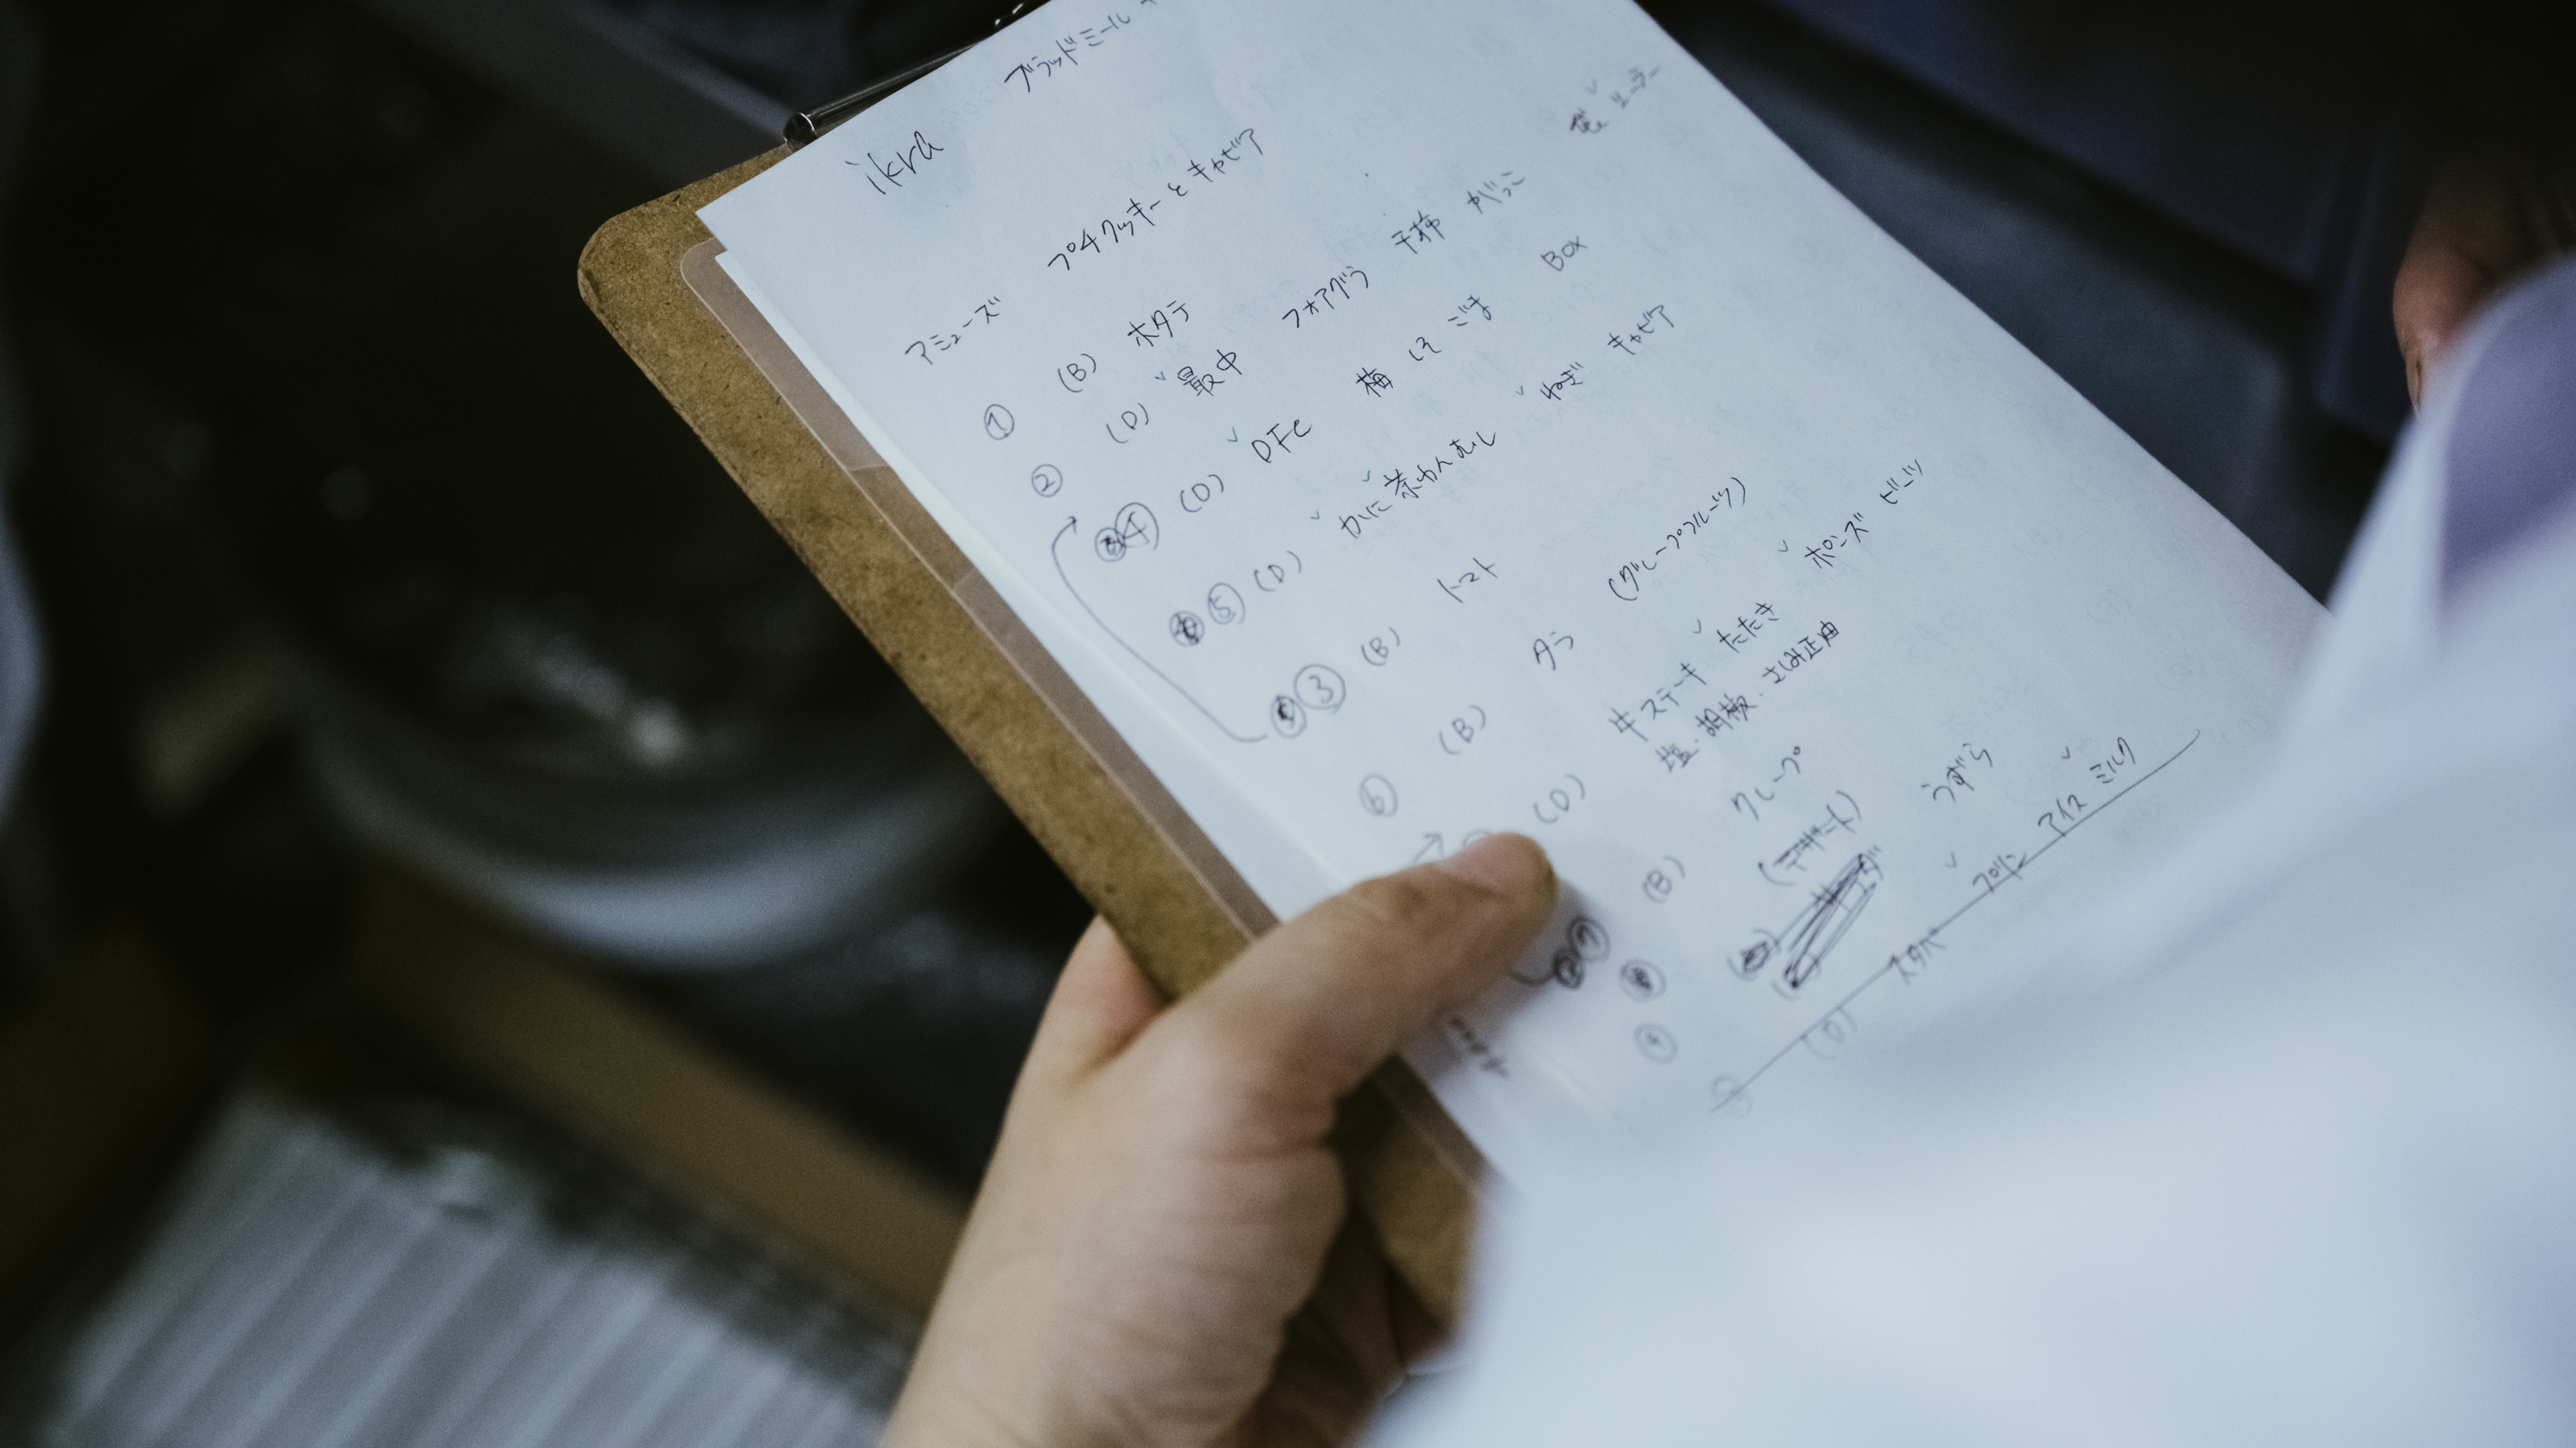 ブラッドミール
ikra
アミューズ プチクッキーとキャビア
① (B) ホタテ
② (D) 最中 フォアグラ 干柿 がっこ
④ (D) DFC 梅 しそ ごま Box
⑤ (D) かに茶わんむし ねぎ キャビア
③ (B) トマト
⑥ (B) タラ (グレープフルーツ)
(D) 牛ステーキ たたき ポンズ ビーツ
塩・胡椒・さしみ正油
⑦ (B) クレープ
⑧ (デザート) うずら
⑨ プリン アイス ミルク
(D) スタバ